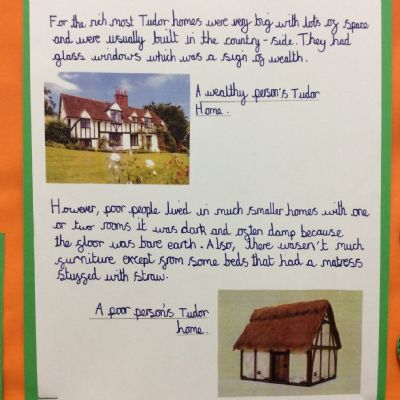 For the rich most Tudor homes were very big with lots of space
and were usually built in the country-side. They had
glass windows which was a sign of wealth.
A wealthy person's Tudor
Home.
However, poor people lived in much smaller homes with one
or two rooms it was dark and often damp because
the floor was bare earth. Also, there wasen't much
furniture except from some beds that had a matress
stuffed with straw.
A poor person's Tudor
home.